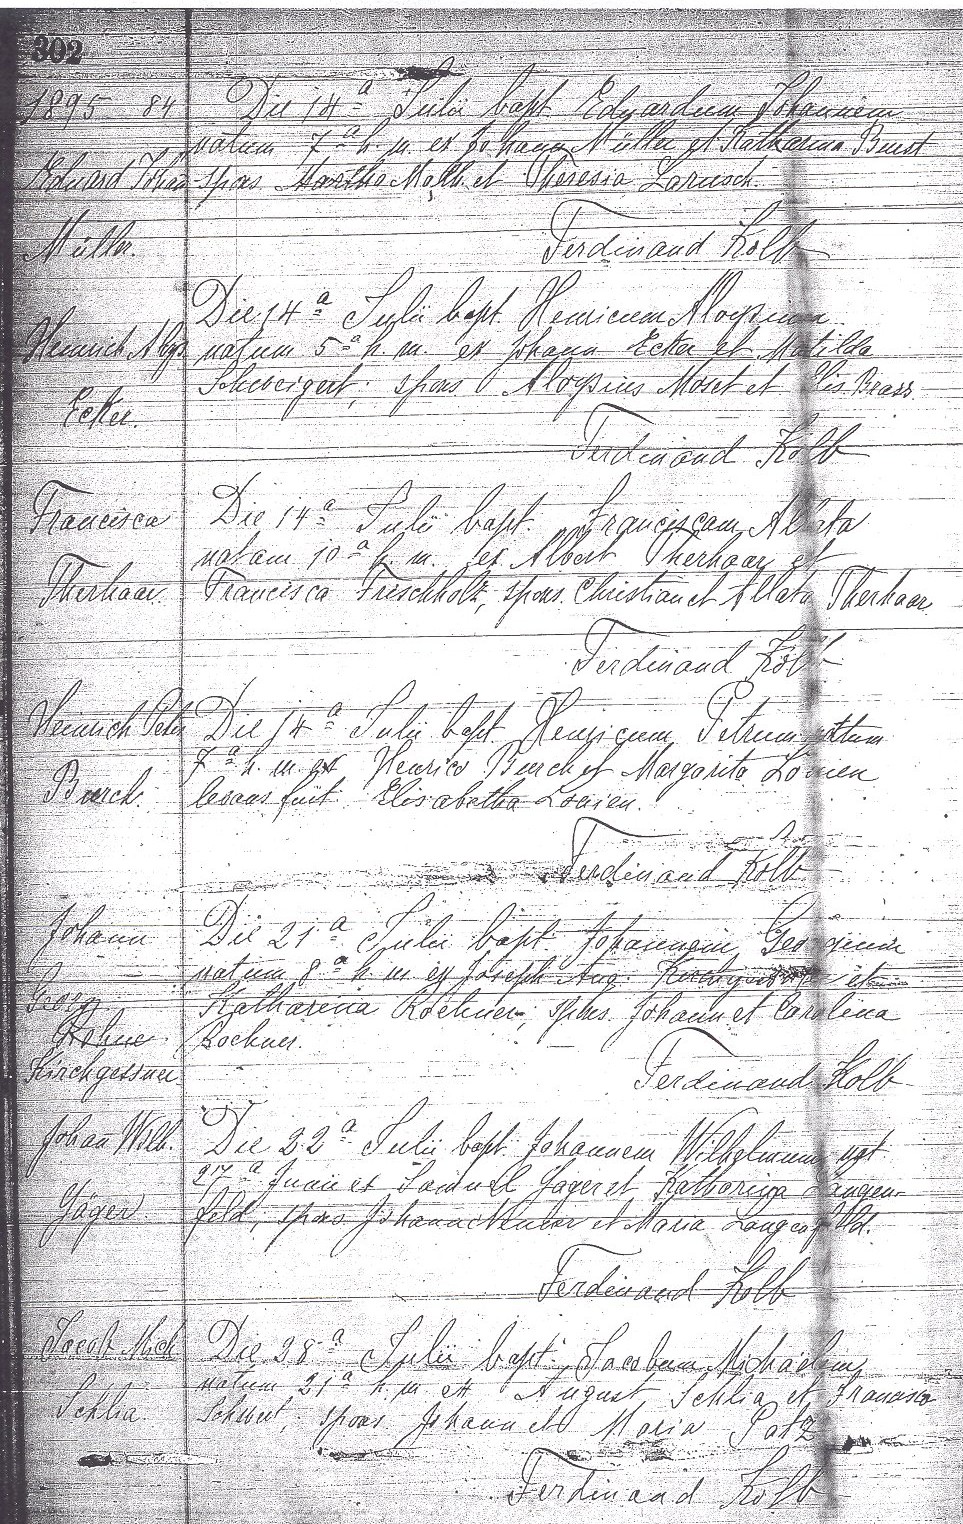 302
1895 84 Die 14ª Julii bapt Eduardum Johannem
natum 7ª h. m. ex Johann Müller et Katharina Burst
Eduard Johan spons Martha Math. et Theresia Larusch.
Müller. Ferdinand Kolb
Die 14ª Julii bapt. Henricum Aloysium
Heinrich Aloys. natum 5ª h. m. ex Johann Ecker et Matilda
Schweigert; spons Aloysius Moset et Elis. Brass.
Ecker.
Ferdinand Kolb
Francisca Die 14ª Julii bapt. Franciscam
natam 10ª h. m. ex Albert Therhaar et
Therhaar. Francisca Frischholz, spons. Christian et Therhaar.
Ferdinand Kolb
Heinrich Peter Die 14ª Julii bapt Henricum Petrum natum
7ª h. m. ex Henrico Burch et Margarita
Burch. levans fuit Elisabetha
Ferdinand Kolb
Johann Die 21ª Julii bapt. Johannem Georgium
natum 8ª h. m ex Joseph Aug. et
Georg Katharina Rochner, spons. Johann et Carolina
Rochner.
Kirchgessner Ferdinand Kolb
Johan Wilh. Die 22ª Julii bapt Johannem Wilhelmum nat
27ª Junii ex Samuel Jäger et Katharina Langen-
Jäger feld, spons Johann et Maria Langenfeld.
Ferdinand Kolb
Jacob Mich Die 28ª Julii bapt. Jacobum Michaelem
natum 21ª h. m. ex August Schlia et Francisca
Schlia. spons Johann et Maria Patz
Ferdinand Kolb